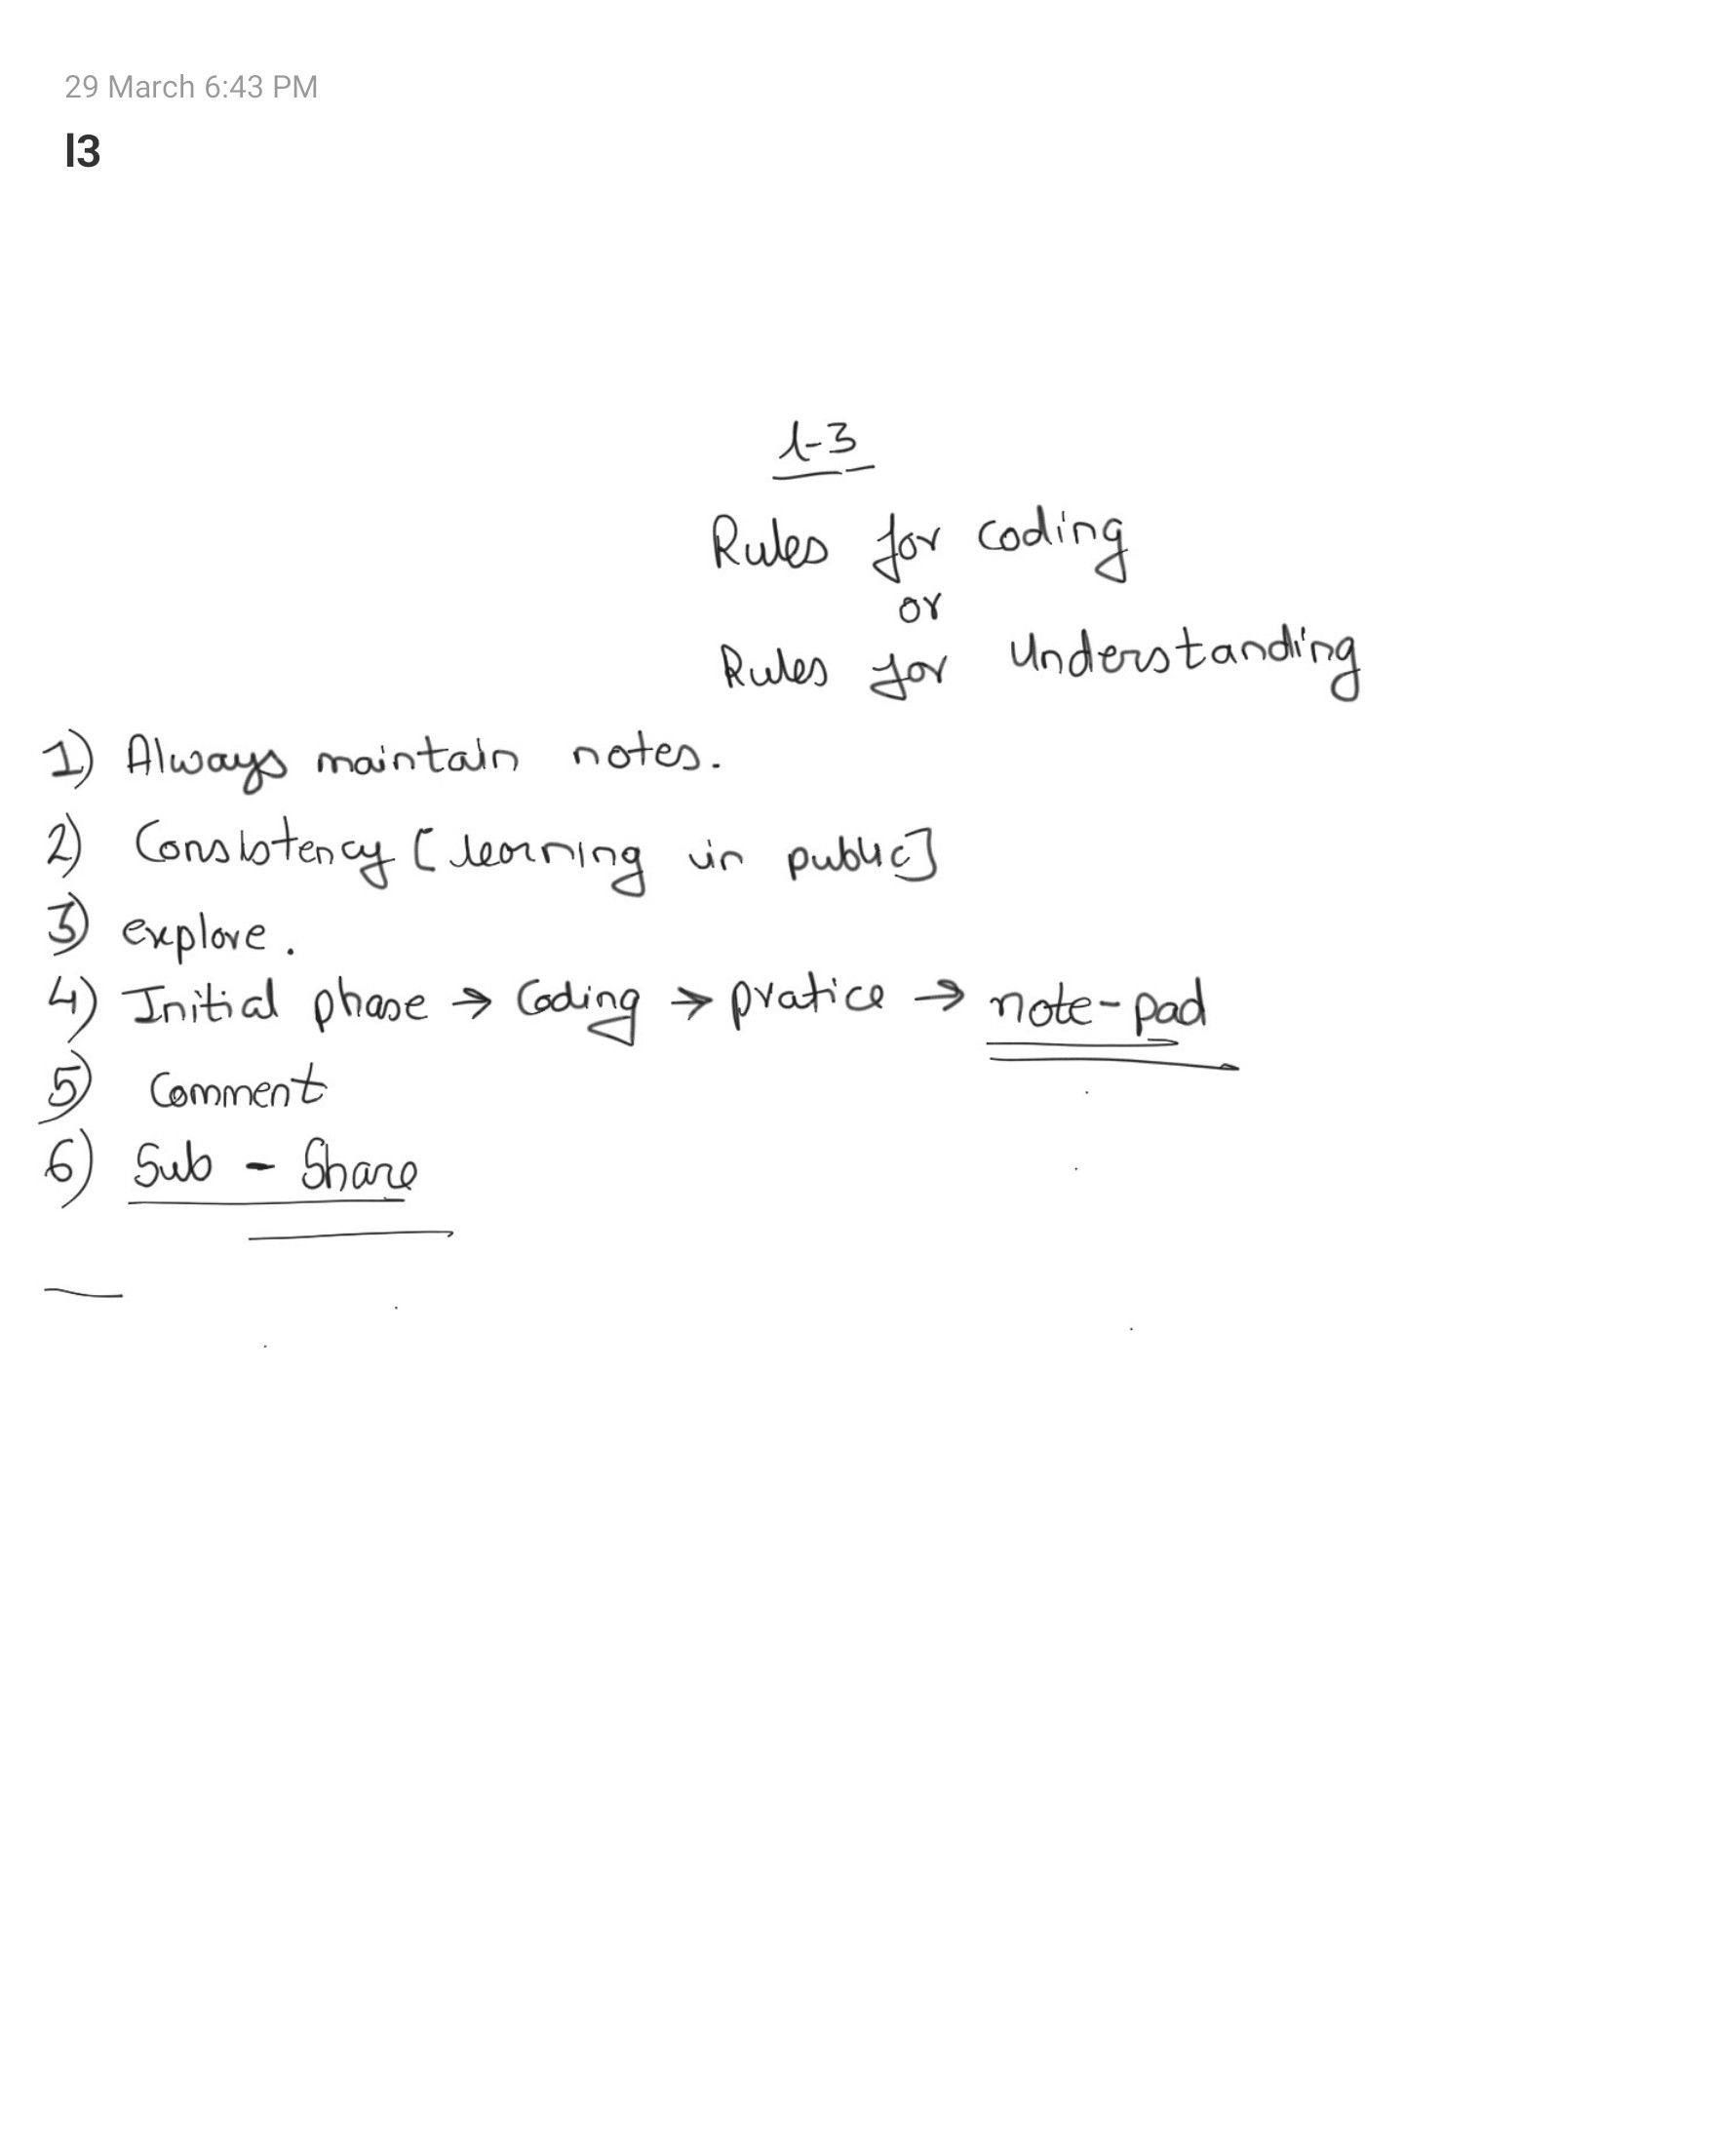 29 March 6:43 PM
l3
l-3
Rules for coding
or
Rules for Understanding
1) Always maintain notes.
2) Consistency [learning in public]
3) explore.
4) Initial phase → Coding → pratice → note-pad
5) Comment
6) Sub - Share